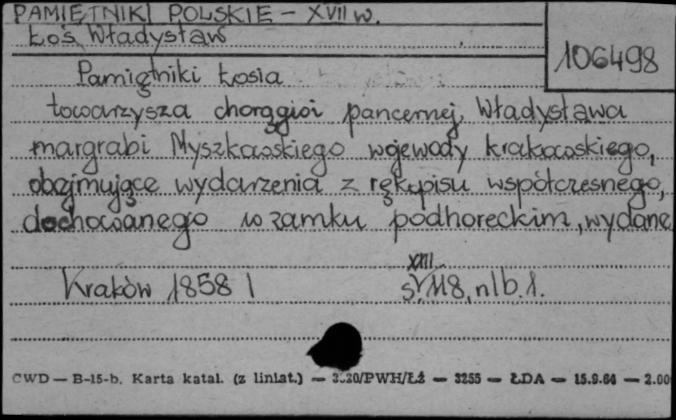 PAMIĘTNIKI POLSKIE - XVII w.
Łoś Władysław
106498
Pamiętniki Łosia
towarzysza chorągwi pancernej Władysława
margrabi Myszkowskiego wojewody krakowskiego,
obejmujące wydarzenia z rękopisu współczesnego,
dochowanego w zamku podhoreckim, wydane
Kraków 1858 |
XIII
s. 118, nlb. 1.
CWD — B-15-b. Karta katal. (z liniat.) — 3220/PWH/Łź — 3255 — ŁDA — 15.9.64 — 2.00